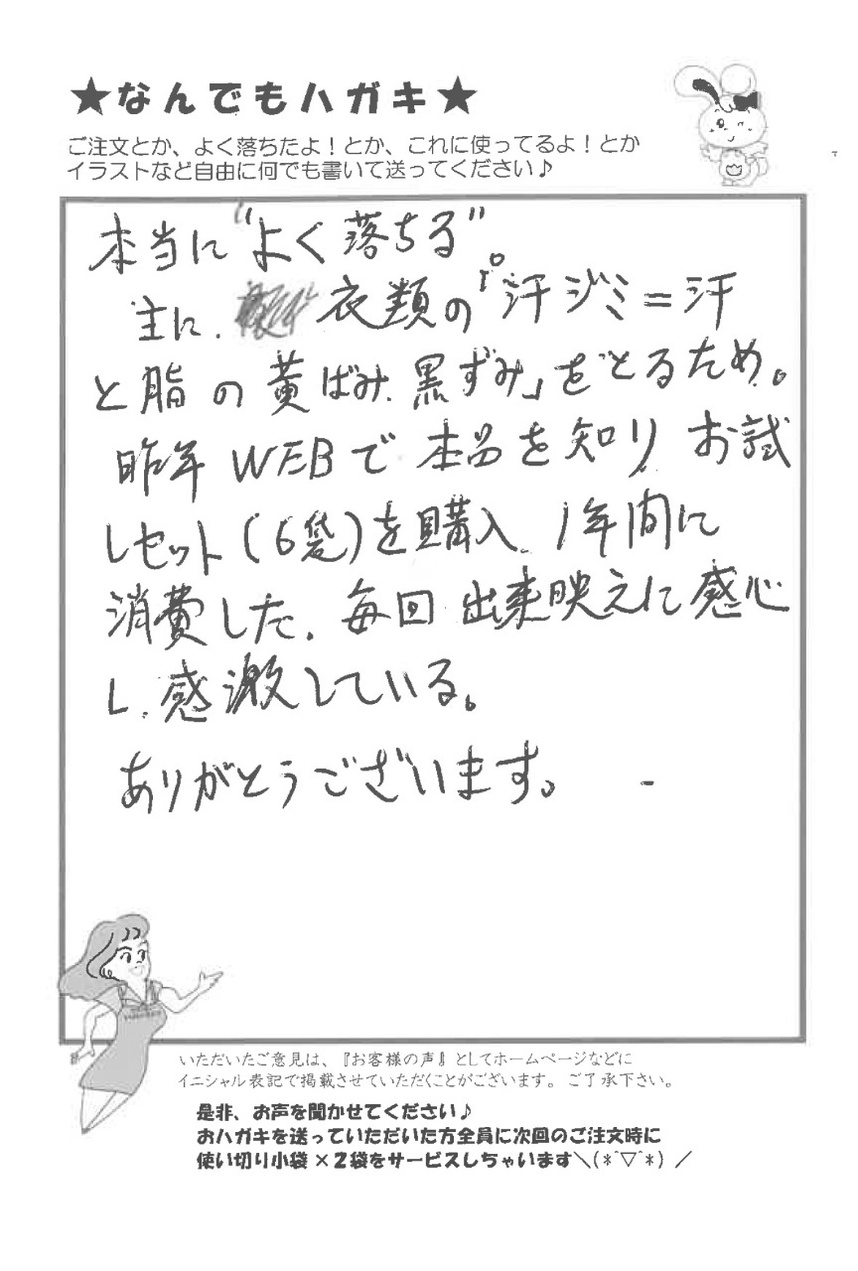 ★なんでもハガキ★
ご注文とか、よく落ちたよ！とか、これに使ってるよ！とか
イラストなど自由に何でも書いて送ってください♪
本当に“よく落ちる”。
主に、衣類の「汗ジミ＝汗
と脂の黄ばみ、黒ずみ」をとるため。
昨年WEBで本品を知り、お試
しセット(6袋)を購入、1年間に
消費した、毎回出来映えに感心
し、感激している。
ありがとうございます。
いただいたご意見は、『お客様の声』としてホームページなどに
イニシャル表記で掲載させていただくことがございます。ご了承下さい。
是非、お声を聞かせてください♪
おハガキを送っていただいた方全員に次回のご注文時に
使い切り小袋×2袋をサービスしちゃいます＼(*ˆ▽ˆ*)／